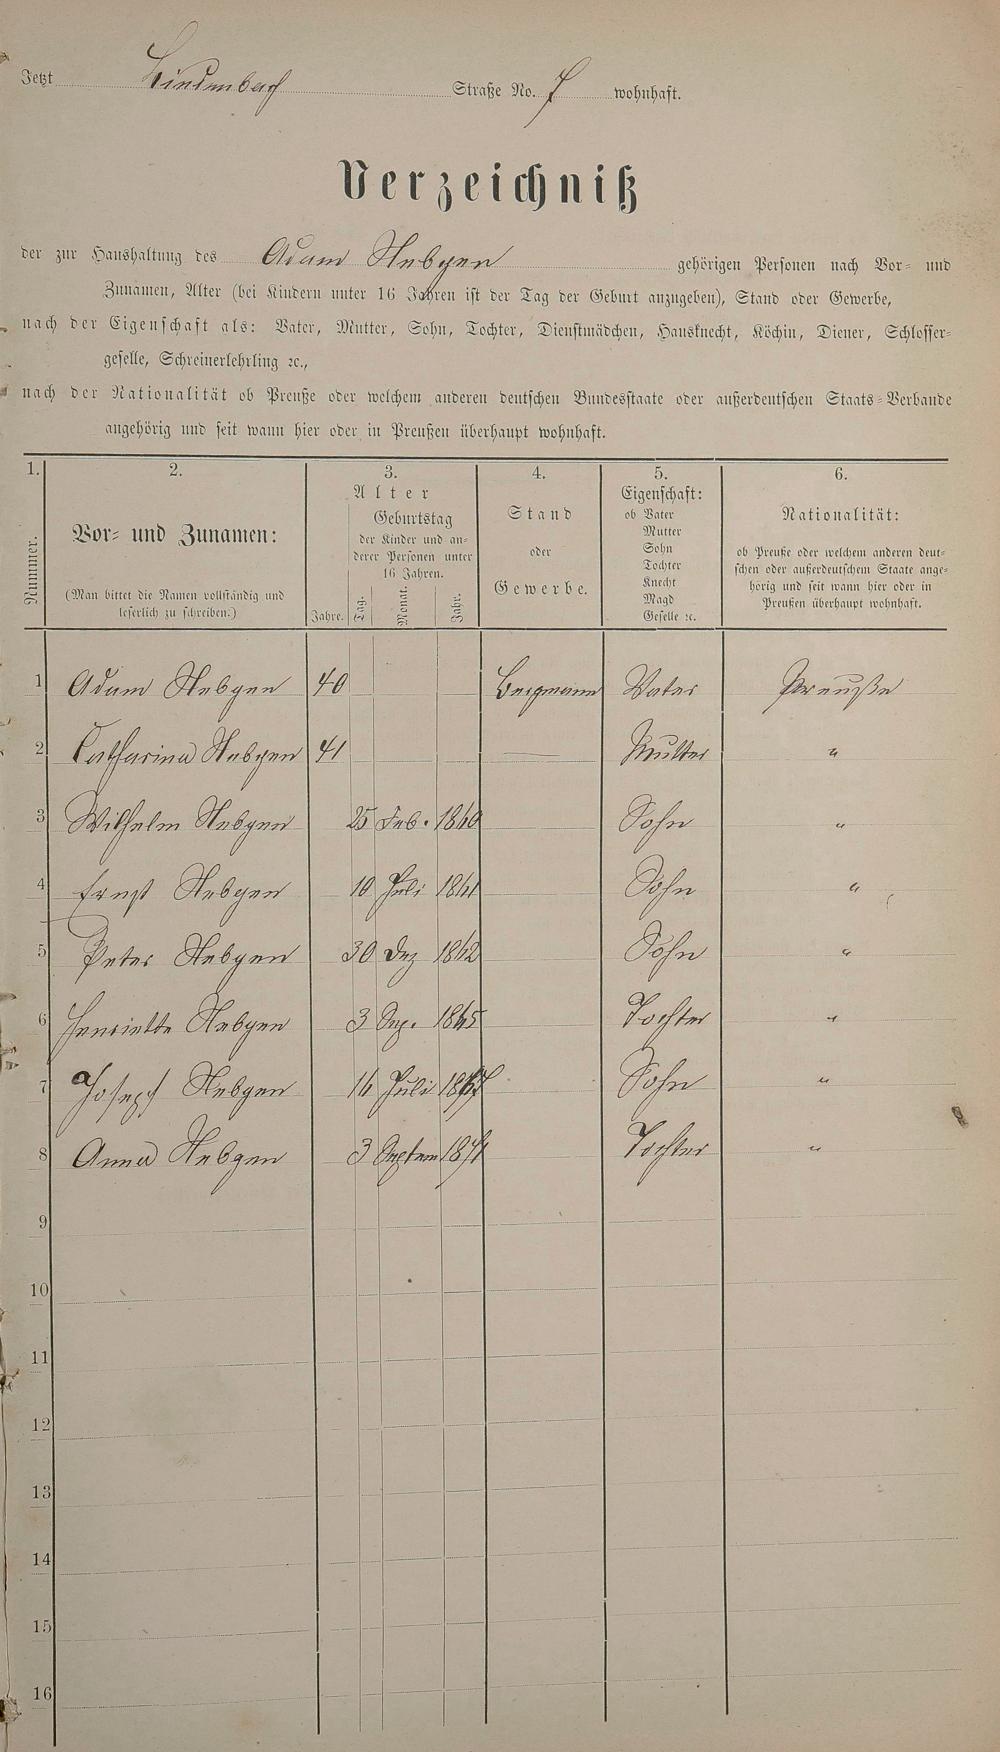 Jetzt Lindenbach Straße No. 7 wohnhaft.
Verzeichniß
der zur Haushaltung des Adam Hebgen gehörigen Personen nach Vor- und
Zunamen, Alter (bei Kindern unter 16 Jahren ist der Tag der Geburt anzugeben), Stand oder Gewerbe,
nach der Eigenschaft als: Vater, Mutter, Sohn, Tochter, Dienstmädchen, Hausknecht, Köchin, Diener, Schlosser-
geselle, Schreinerlehrling ꝛc.,
nach der Nationalität ob Preuße oder welchem anderen deutschen Bundesstaate oder außerdeutschen Staats-Verbande
angehörig und seit wann hier oder in Preußen überhaupt wohnhaft.
1. 2. 3. 4. 5. 6.
Nummer.
Vor- und Zunamen:
(Man bittet die Namen vollständig und
leserlich zu schreiben.)
Alter
Jahre.
Geburtstag
der Kinder und an-
derer Personen unter
16 Jahren.
Tag. Monat. Jahr.
Stand
oder
Gewerbe.
Eigenschaft:
ob Vater
Mutter
Sohn
Tochter
Knecht
Magd
Geselle ꝛc.
Nationalität:
ob Preuße oder welchem anderen deut-
schen oder außerdeutschem Staate ange-
hörig und seit wann hier oder in
Preußen überhaupt wohnhaft.
1 Adam Hebgen 40 Bergmann Vater Preuße
2 Catharina Hebgen 41 Mutter "
3 Wilhelm Hebgen 25 Feb. 1860 Sohn "
4 Ernst Hebgen 10 Juli 1861 Sohn "
5 Peter Hebgen 30 Dez 1862 Sohn "
6 Henriette Hebgen 3 Sep. 1865 Tochter "
7 Joseph Hebgen 16 Juli 1867 Sohn "
8 Anna Hebgen 3 Septem 1871 Tochter "
9
10
11
12
13
14
15
16